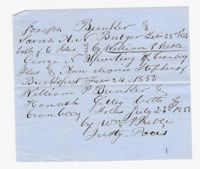 Joseph Bunker &
Sarah A. N. Bulger Feb 22 1853
both of C Isles by William P Preble
George N Spurling of Cranberry
Isles & Ann Maria Stephens of
Bucksport Dec 24. 1853
William P Bunker &
Hannah Gilley both of
Cranberry Isles July 23 1853
by Wm P Preble
Justy. Peace